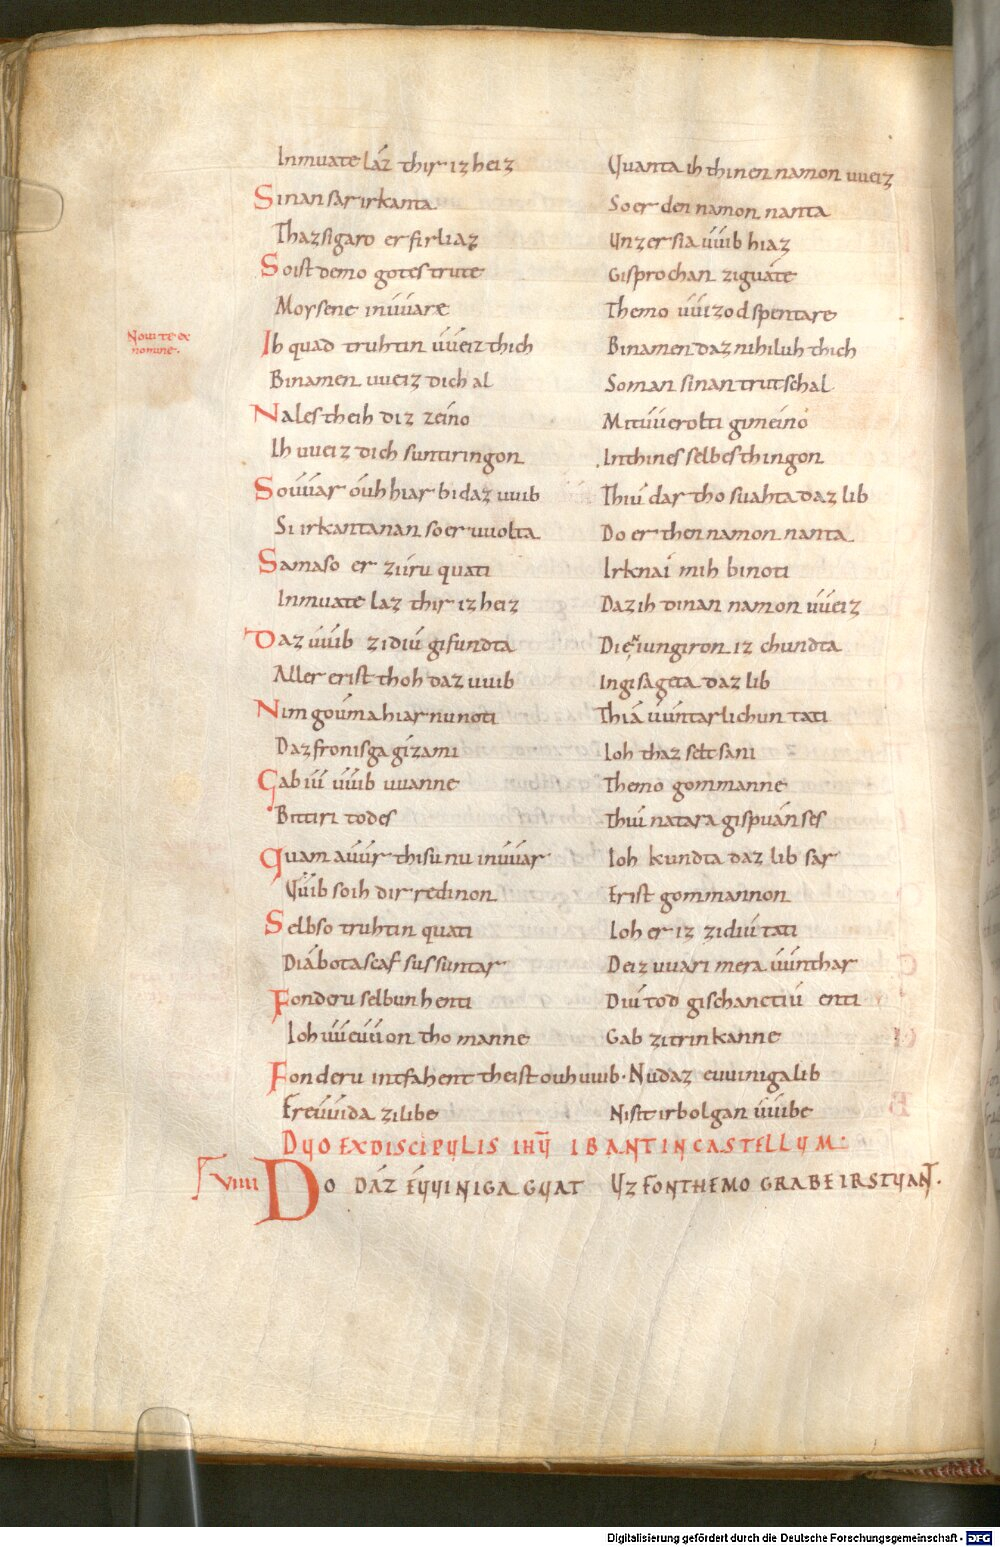 Inmuate láz thir iz heiz Quanta ih thinen namon uueiz
Sinan sar irkanta So er den namon nanta
Thaz sigaro er firliaz Unz er sia uuib hiaz
So ist demo gotes trute Gisprochan ziguate
Moysene in uuare Themo uuizod spentare
Noui te ex
nomine.
Ih quad truhtin uueiz thich Binamen daz nihiluh thich
Binamen uueiz dich al So man sinan trut schal
Nales theih diz zeino Mit uuerolti gimeino
Ih uueiz dich suntiringon In thines selbes thingon
So uuar óuh hiar bi daz uuib Thiu dar tho suahta daz lib
Si irkantanan so er uuolta Do er then namon nanta
Sama so er ziiru quati Irknai mih binoti
Inmuate laz thir iz heiz Daz ih dinan namon uueiz
Daz uuib zi diu gifundta Die iungiron iz chundta
Aller erist thoh daz uuib In gisageta daz lib
Nim gouma hiar nu noti Thia uuntarlichun tati
Daz fronisga gizami Ioh thaz selt sani
Gab iu uuib uuanne Themo gommanne
Bittiri todes Thiu natara gispuanses
Quam auur thisu nu in uuar Ioh kundta daz lib sar
Quib so ih dir redinon Erist gommannon
Selbso truhtin quati Ioh er iz zidiu tati
Diá botascaf sus suntar Deiz uuari mera uunthar
Fon deru selbun henti Diu tod gischancti iu enti
Ioh uueuuon tho manne Gab zi trinkanne
Fon deru intfahent theist ouh uuib. Nu daz euuiniga lib
Freuuida zi libe Nist irbolgan uuibe
DUO EX DISCIPULIS IHU IBANT IN CASTELLUM:
VIIII DO DÁZ ÉUUINIGA GUAT UZ FON THEMO GRABE IRSTUANT.
Digitalisierung gefördert durch die Deutsche Forschungsgemeinschaft - DFG